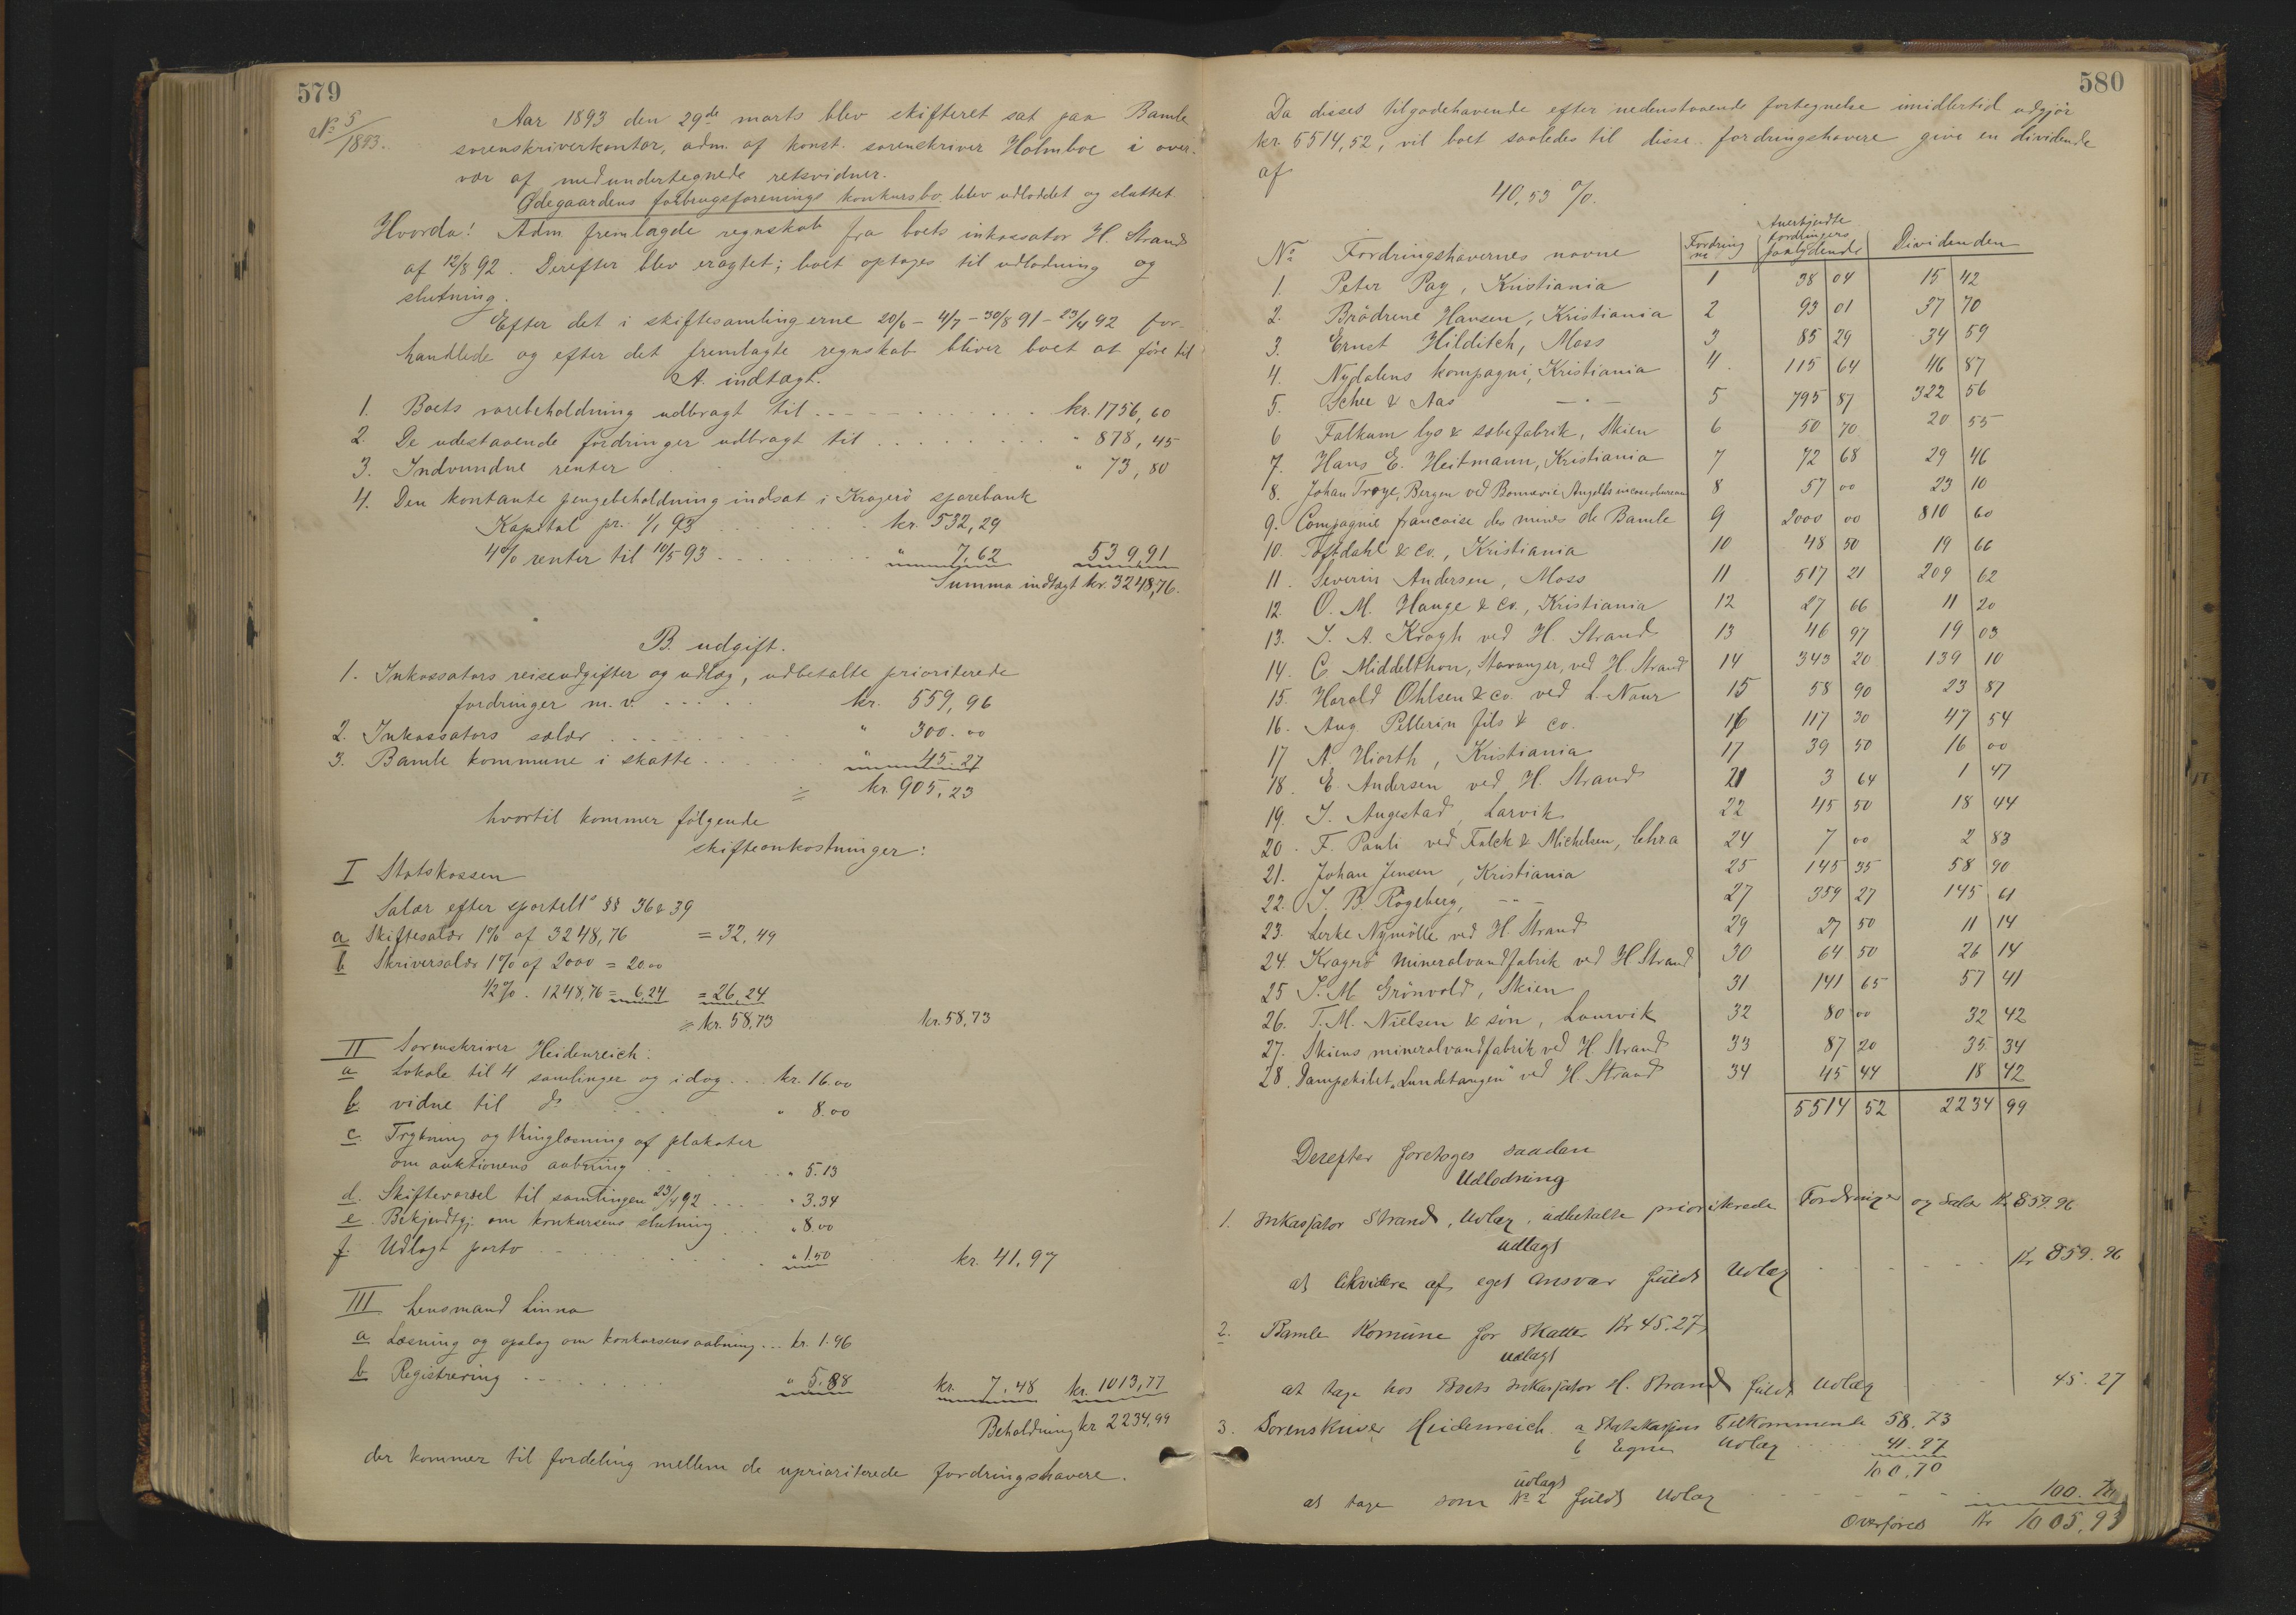 579
No 5/1893.
Aar 1893 den 29de marts blev skifteret sat paa Bamle
sorenskriverkontor, adm. af konst. sorenskriver Holmboe i over-
vær af medundertegnede retsvidner.
Ødegaardens forbrugsforenings konkursbo blev udloddet og sluttet.
Hvorda! Adm. fremlagde regnskab fra boets inkassator H. Strand
af 12/8 92. Derefter blev eragtet; boet optages til udlodning og
slutning.
Efter det i skiftesamlingerne 20/6 – 4/7 – 30/8 91 – 23/4 92 for-
handlede og efter det fremlagte regnskab bliver boet at före til
A. indtægt.
1. Boets varebeholdning udbragt til . . . kr. 1756,60
2. De udestaaende fordringer udbragt til . . . " 878,45
3. Indvundne renter . . . " 73,80
4. Den kontante pengebeholdning indsat i Kragerö sparebank
Kapital pr. 1/1 93 . . . kr. 532,29
4% renter til 10/5 93 . . . " 7,62 539,91
Summa indtægt kr. 3248,76.
B. udgift.
1. Inkassators reiseudgifter og udlæg, udbetalte prioriterede
fordringer m. v. . . . kr. 559,96
2. Inkassators salær . . . " 300.00
3. Bamle kommune i skatte . . . " 45.27
÷ kr. 905.23
hvortil kommer fölgende
skifteomkostninger:
I Statskassen
Salær efter sportell §§ 36 & 39
a Skiftesalær 1% af 3248,76 = 32,49
b Skriversalær 1% af 2000 = 20.00
1/2% . 1248,76 = 6,24 = 26,24
= kr. 58,73 kr. 58,73
II Sorenskriver Heidenreich:
a Lokale til 4 samlinger og idag . . . kr. 16.00
b vidne til do . . . " 8.00
c. Trykning og thinglæsning af plakater
om auktionens aabning . . . " 5.13
d. Skiftevarsel til samlingen 23/4 92 . . . " 3.34
e. Bekjendtgj. om konkursens slutning . . . " 8.00
f. Udlagt porto . . . " 1.50 kr. 41,97
III Lensmand Linna
a Læsning og opslag om konkursens aabning . . . kr. 1.96
b Registrering . . . " 5.88 kr. 7,48 kr. 1013,77
Beholdning kr 2234,99
der kommer til fordeling mellem de uprioriterede fordringshavere.
580
Da disses tilgodehavende efter nedenstaaende fortegnelse imidlertid udgjör
kr. 5514,52, vil boet saaledes til disse fordringshavere give en dividende
af
40,53 %.
No Fordringshavernes navne Fordring no Anerkjendte fordringers paalydende Dividenden
1. Peter Pay, Kristiania 1 38 04 15 42
2. Brödrene Hansen, Kristiania 2 93 01 37 70
3. Ernst Hilditch, Moss 3 85 29 34 59
4. Nydalens kompagni, Kristiania 4. 115 64 46 87
5. Schee & Aas — " — 5 795 87 322 56
6 Falkum lys & sæbefabrik, Skien 6 50 70 20 55
7. Hans E. Heitmann, Kristiania 7 72 68 29 46
8. Johan Troye, Bergen ved Bonnevie Angells incassobureau 8 57 00 23 10
9. Compagnie francaise des mines de Bamle 9 2000 00 810 60
10. Toftdahl & co., Kristiania 10 48 50 19 66
11. Severin Andersen, Moss 11 517 21 209 62
12. O. M. Hauge & co., Kristiania 12 27 66 11 20
13. J. A. Krogh ved H. Strand 13 46 97 19 03
14. C. Middelthon, Stavanger, ved H. Strand 14 343 20 139 10
15. Harald Ohlsen & co. ved L. Naur 15 58 90 23 87
16. Aug. Pellerin fils & co. 16 117 30 47 54
17 A. Hiorth, Kristiania 17 39 50 16 00
18. E Andersen ved H. Strand 21 3 64 1 47
19. J. Augestad, Larvik 22 45 50 18 44
20. F. Pauli ved Falck & Michelsen, Chra 24 7 00 2 83
21. Johan Jensen, Kristiania 25 145 35 58 90
22. J. B. Rögeberg, — " — 27 359 27 145 61
23. Lerke Nymölle ved H. Strand 29 27 50 11 14
24. Kragerö mineralvandfabrik ved H Strand 30 64 50 26 14
25 J. M. Grönvold, Skien 31 141 65 57 41
26. T. M. Nielsen & sön, Laurvik 32 80 00 32 42
27. Skiens mineralvandfabrik ved H. Strand 33 87 20 35 34
28. Dampskibet „Lundetangen" ved H. Strand 34 45 44 18 42
5514 52 2234 99
Derefter foretoges saadan
Udlodning
1. Inkassator Strand, Udlæg, udbetalte prioriterede Fordringer og Salær Kr 859.96
udlagt
at likvidere af eget ansvar fuldt Udlæg . . . Kr 859.96
2. Bamle Komune for Skatter Kr 45.27,
udlagt
at tage hos Boets Inkassator H. Strand fuldt Udlæg . . . 45.27
3. Sorenskriver Heidenreich a Statskassens Tilkommende 58.73
b Egne Udlæg . . . 41.97
100.70
udlagt
at tage som No 2 fuldt Udlæg . . . 100.70
Overföres Kr 1005,93